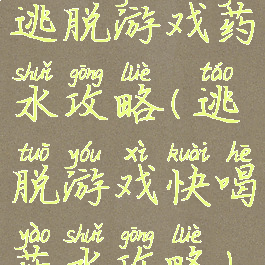 逃脱游戏药
shuǐ gōng lüè táo
水攻略(逃
tuō yóu xì kuài hē
脱游戏快喝
yào shuǐ gōng lüè
药水攻略)